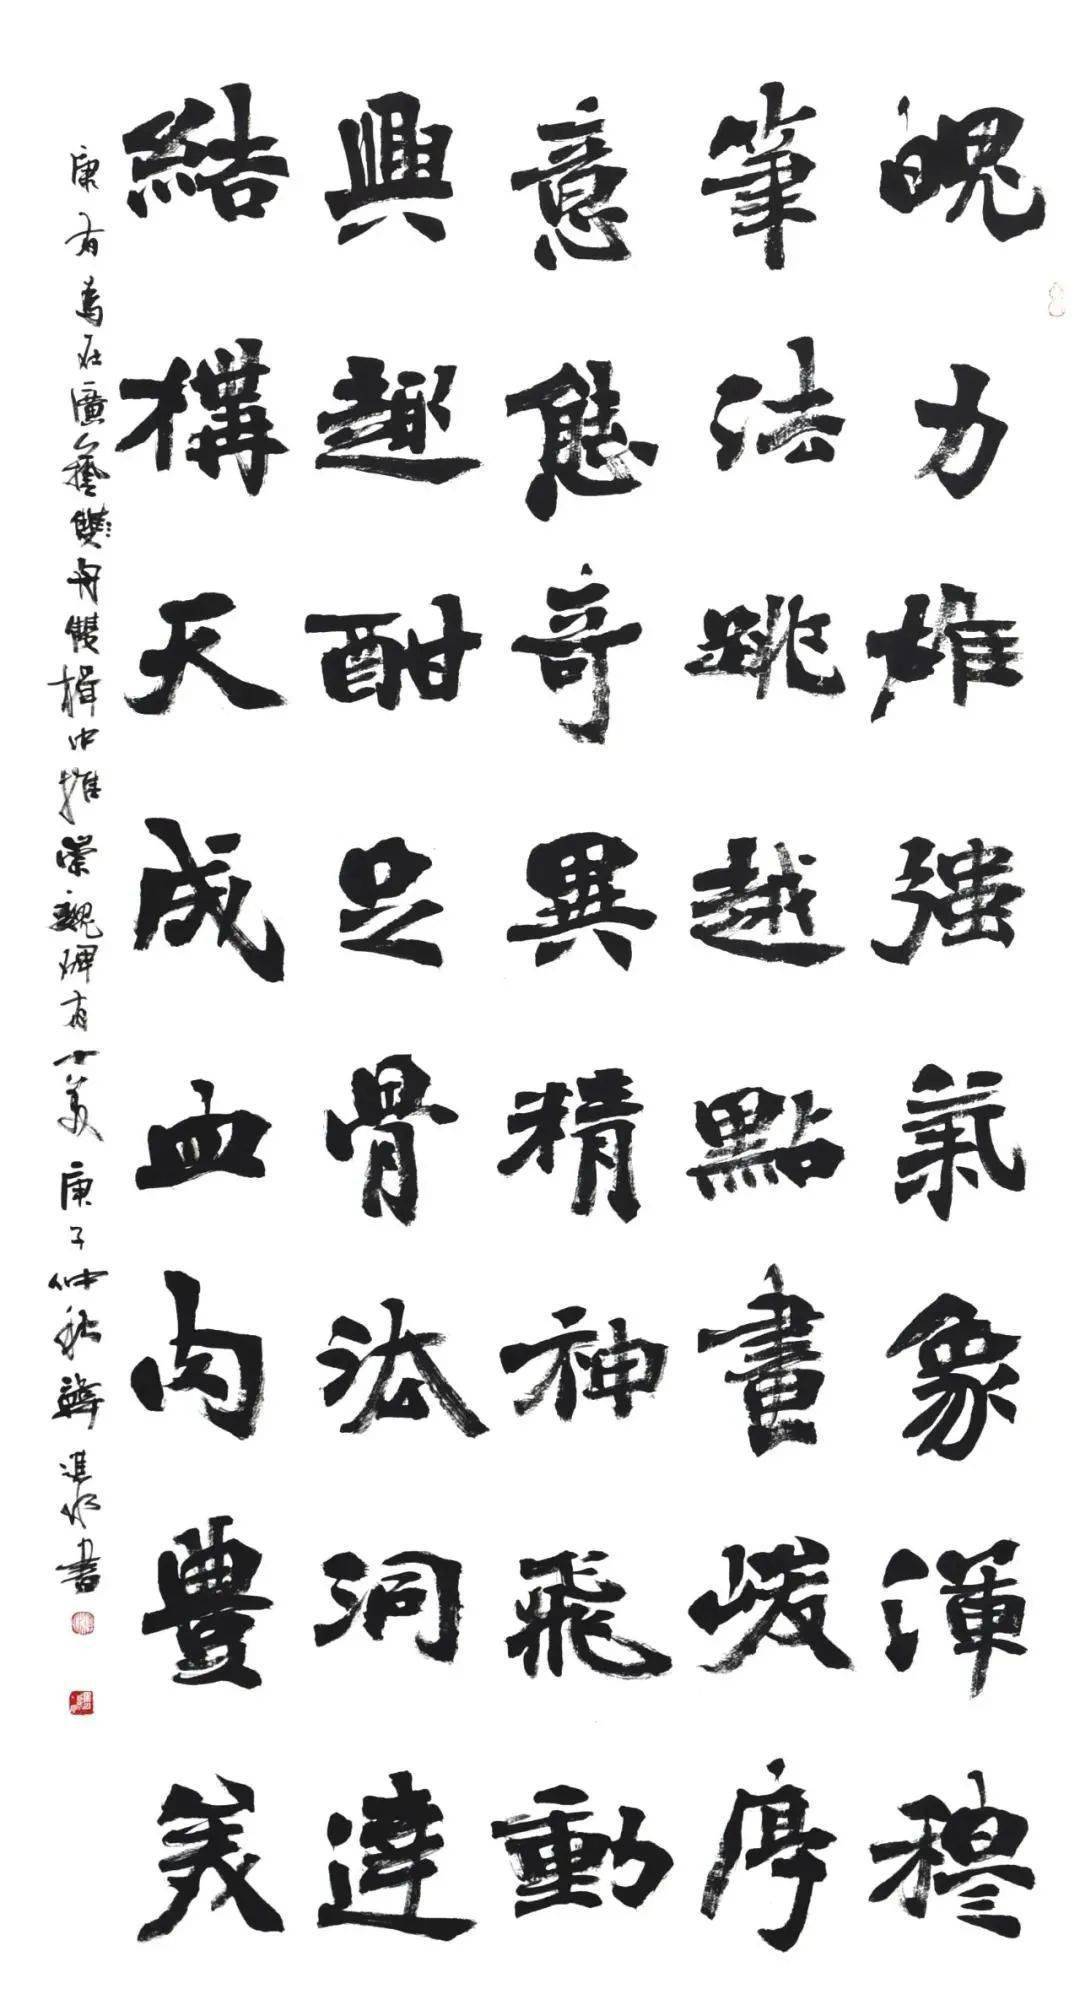 魄力雄强氣象渾穆
筆法跳越點畫峻厚
意態奇異精神飛動
興趣酣足骨法洞達
結構天成血肉豐美
康有為在廣藝雙舟雙楫中推崇魏碑有十美庚子仲秋韓書